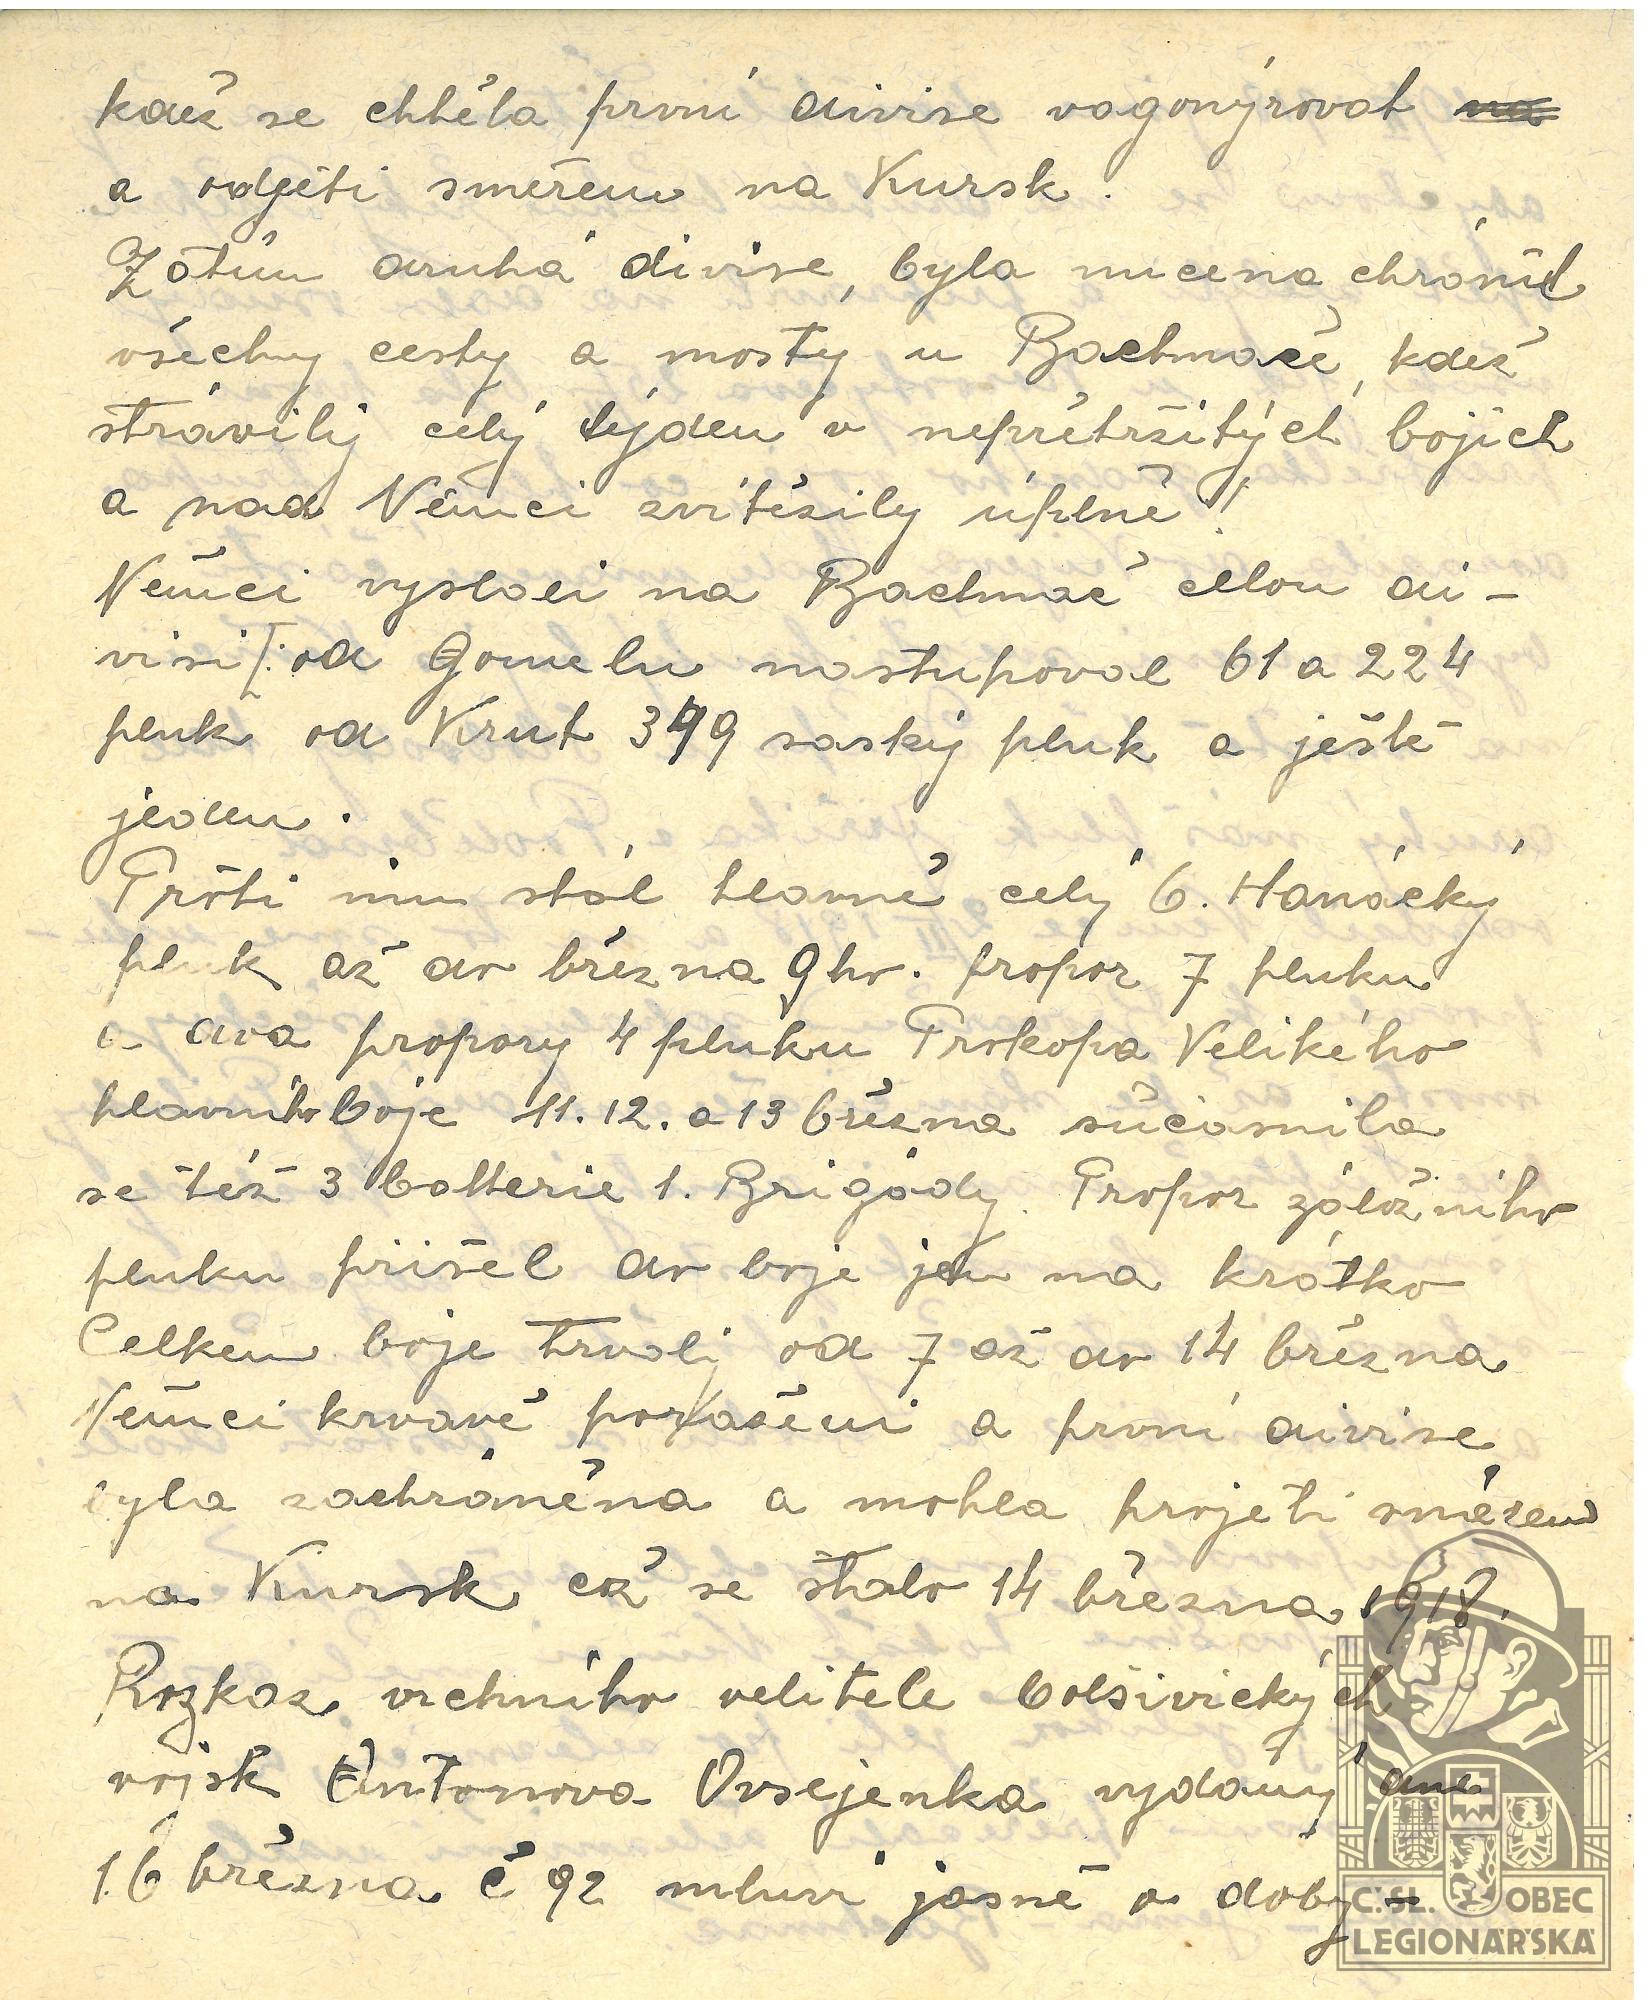 kdež se chtěla první divise vagonýrovat na
a odjeti směrem na Kursk.
Zatím druhá divise, byla nucena chránit
všechny cesty a mosty u Bachmače, kdež
strávily celý týden v nepřetržitých bojích
a nad Němci zvítězily úplně!
Němci vyslali na Bachmač celou di-
visi [: od Gomelu nastupoval 61 a 224
pluk od Krut 399 saský pluk a ještě
jeden.
Proti nim stál hlavně celý 6. Hanácký
pluk až do března 9 ho. prapor 7 pluku
a dva prapory 4 pluku Prokopa Velikého
hlavního boje 11. 12. a 13 března súčasnila
se též 3 batterie 1. Brigády. Prapor záložního
pluku přišel do boje jen na krátko
Celkem boje trvaly od 7 až do 14 března
Němci krvavě poraženi a první divise
byla zachráněna a mohla projeti směrem
na Kursk což se stalo 14 března 1918.
Rozkaz vrchního velitele bolšivických
vojsk Antonova Ovsejenka vydaný dne
16 března č 92 mluví jasně o doby-
Č.SL. OBEC
LEGIONÁŘSKÁ